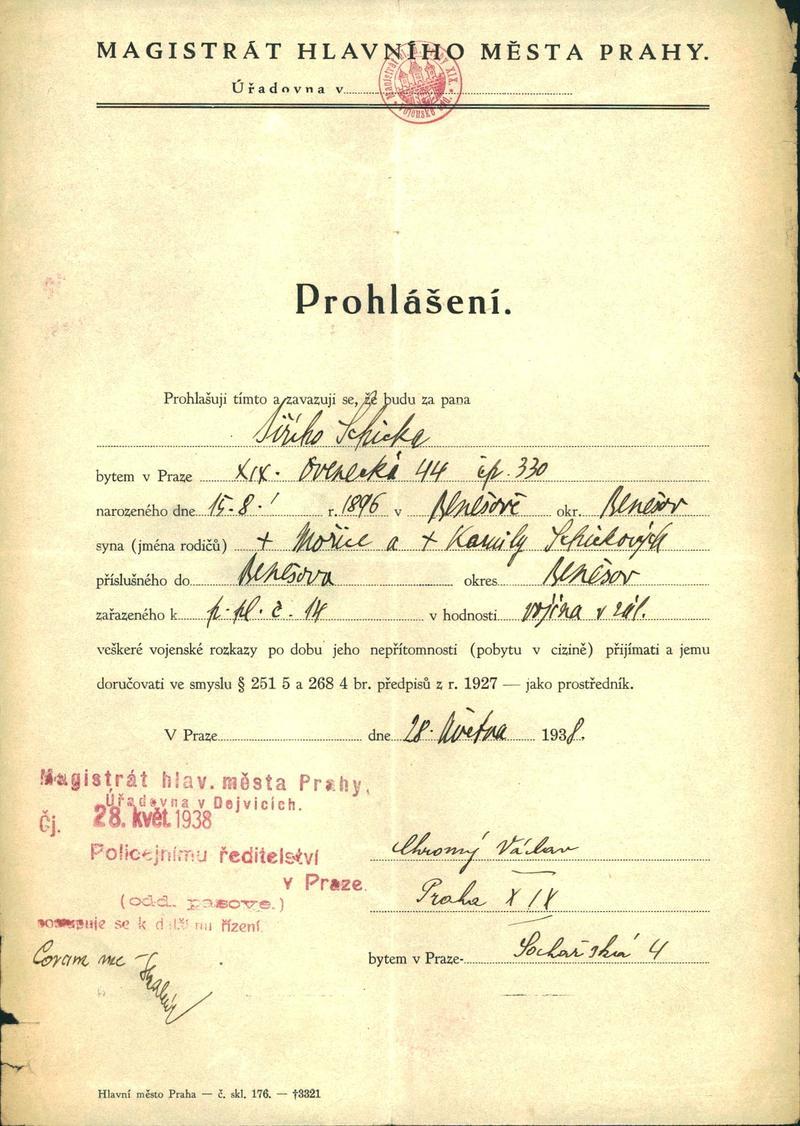 MAGISTRÁT HLAVNÍHO MĚSTA PRAHY.
Úřadovna v
Prohlášení.
Prohlašuji tímto a zavazuji se, že budu za pana
Jiřího Schicka
bytem v Praze XIX. Ovenecká 44 čp. 330
narozeného dne 15. 8. r. 1896 v Benešově okr. Benešov
syna (jména rodičů) + Mořice a + Kamily Schickových
příslušného do Benešova okres Benešov
zařazeného k p. pl. č. 14 v hodnosti vojína v zál.
veškeré vojenské rozkazy po dobu jeho nepřítomnosti (pobytu v cizině) přijímati a jemu
doručovati ve smyslu § 251 5 a 268 4 br. předpisů z r. 1927 — jako prostředník.
V Praze dne 28. května 1938.
Magistrát hlav. města Prahy,
Úřadovna v Dejvicích.
Čj. 28. květ. 1938
Policejnímu ředitelství
v Praze.
(odd. pasové.)
postupuje se k dalšímu řízení.
Chromý Václav
Praha XIX
bytem v Praze- Sochařská 4
Coram me
Hlavní město Praha — č. skl. 176. — †3321